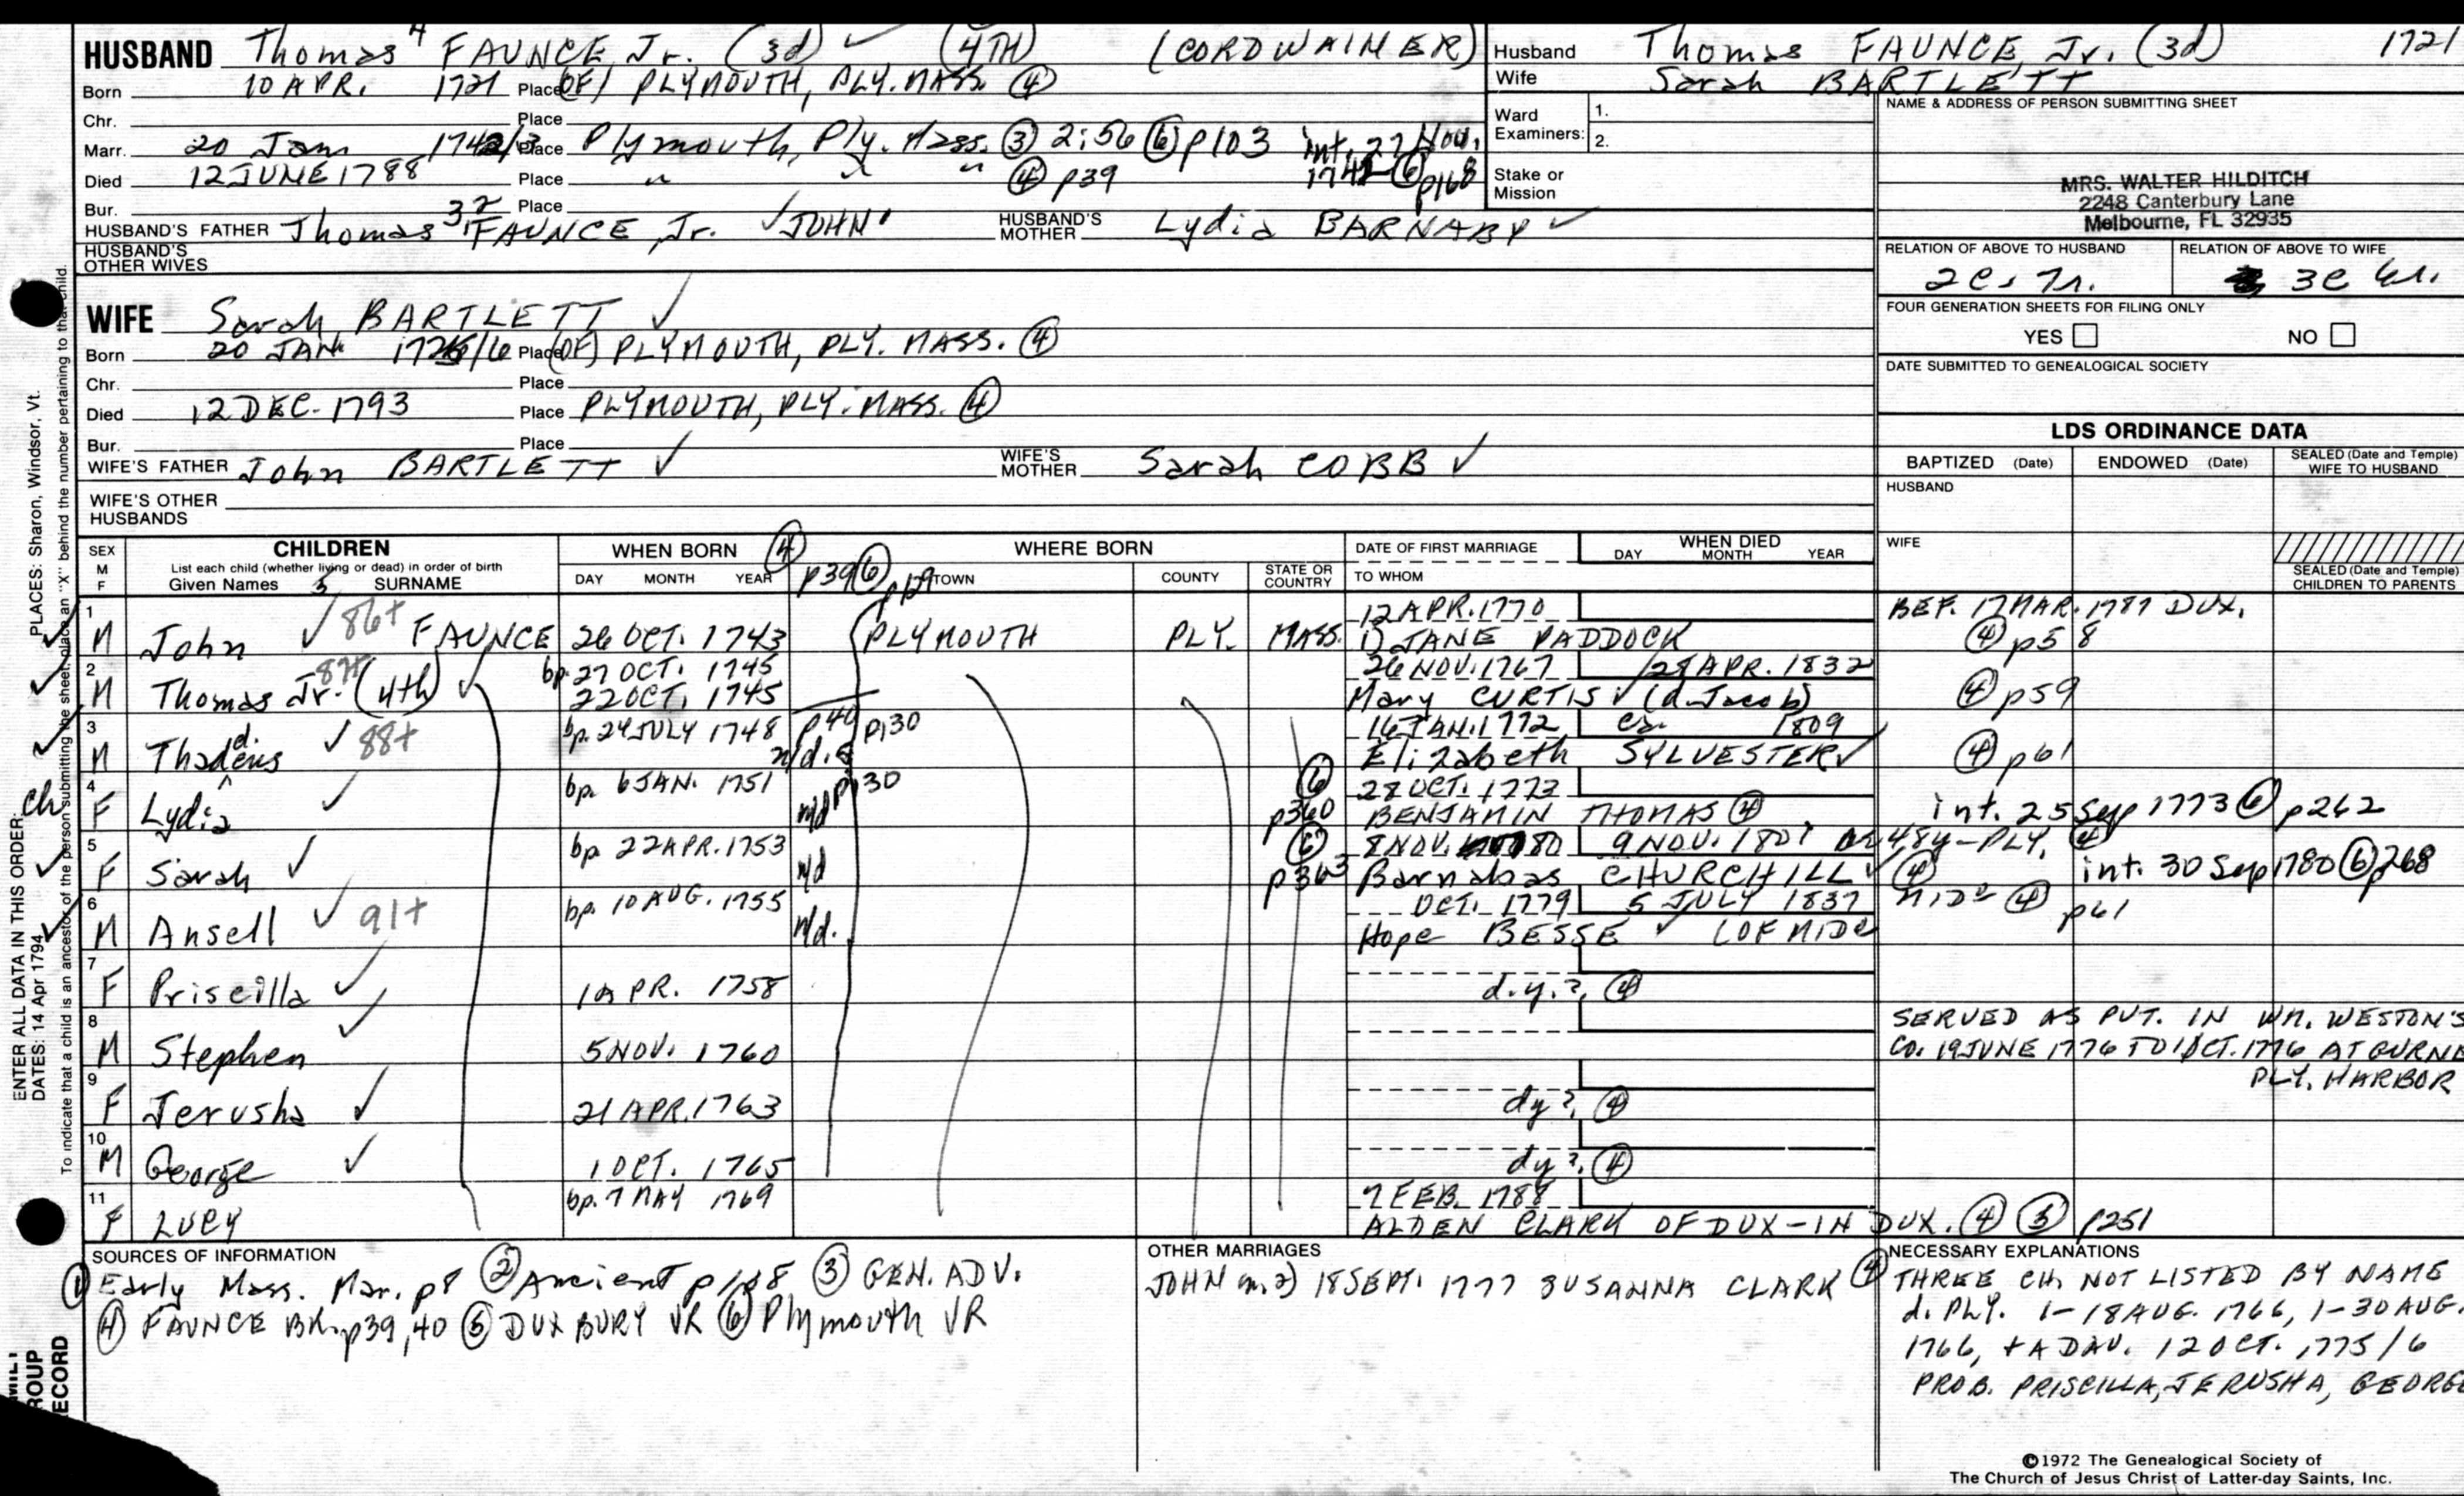 HUSBAND Thomas 4 FAUNCE, Jr. (3d) ✓ (4TH) (CORDWAINER)
Born 10 APR. 1721 Place (OF) PLYMOUTH, PLY. MASS. ④
Chr. Place
Marr. 20 Jan 1742/3 Place Plymouth, Ply. Mass. ③ 2:56 ⑥ p103 int. 27 Nov.
Died 12 JUNE 1788 Place " " " ④ p39 1742 ⑥ p168
Bur. Place
HUSBAND'S FATHER Thomas 3 FAUNCE, Jr. ✓ JOHN HUSBAND'S MOTHER Lydia BARNABY ✓
HUSBAND'S OTHER WIVES
WIFE Sarah BARTLETT ✓
Born 20 JAN 1725/6 Place (OF) PLYMOUTH, PLY. MASS. ④
Chr. Place
Died 12 DEC. 1793 Place PLYMOUTH, PLY. MASS. ④
Bur. Place
WIFE'S FATHER John BARTLETT ✓ WIFE'S MOTHER Sarah COBB ✓
WIFE'S OTHER HUSBANDS
Husband Thomas FAUNCE, Jr. (3d) 1721
Wife Sarah BARTLETT
Ward Examiners: 1.
2.
Stake or Mission
NAME & ADDRESS OF PERSON SUBMITTING SHEET
MRS. WALTER HILDITCH
2248 Canterbury Lane
Melbourne, FL 32935
RELATION OF ABOVE TO HUSBAND RELATION OF ABOVE TO WIFE
2c, 7r. 3c 6r.
FOUR GENERATION SHEETS FOR FILING ONLY
YES NO
DATE SUBMITTED TO GENEALOGICAL SOCIETY
LDS ORDINANCE DATA
BAPTIZED (Date) ENDOWED (Date) SEALED (Date and Temple) WIFE TO HUSBAND
HUSBAND
WIFE
SEALED (Date and Temple) CHILDREN TO PARENTS
SEX M F CHILDREN WHEN BORN ④ WHERE BORN DATE OF FIRST MARRIAGE WHEN DIED
List each child (whether living or dead) in order of birth
Given Names 5 SURNAME DAY MONTH YEAR p39 ⑥ p129 TOWN COUNTY STATE OR COUNTRY TO WHOM DAY MONTH YEAR
1 12 APR. 1770 BEF. 17 MAR. 1787 DUX.
M John ✓ 86+ FAUNCE 26 OCT. 1743 PLYMOUTH PLY. MASS. 1) JANE PADDOCK ④ p58
2 87+ bp. 27 OCT. 1745 26 NOV. 1767 28 APR. 1832
M Thomas Jr. (4th) ✓ 22 OCT. 1745 Mary CURTIS ✓ (d. Jacob) ④ p59
3 bp. 24 JULY 1748 p40 p130 16 JAN. 1772 ca. 1809
M Thaddeus ✓ 88+ n/d. Elizabeth SYLVESTER ✓ ④ p61
4 bp. 6 JAN. 1751 p130 ⑥ 28 OCT. 1773
F Lydia ✓ n/d p360 BENJAMIN THOMAS ④ int. 25 Sep 1773 ⑥ p262
5 bp 22 APR. 1753 ⑥ 8 NOV. 1780 9 NOV. 1801 48y-PLY. ④
F Sarah ✓ n/d p363 Barnabas CHURCHILL ✓ ④ int. 30 Sep 1780 ⑥ p268
6 bp. 10 AUG. 1755 OCT. 1779 5 JULY 1837
M Ansell ✓ 91+ n/d. Hope BESSE ✓ (OF MIDD ④ p61
7
F Priscilla ✓ 1 APR. 1758 d.y.? ④
8
M Stephen ✓ 5 NOV. 1760 SERVED AS PVT. IN WM. WESTON'S
CO. 19 JUNE 1776 TO 1 OCT. 1776 AT GURNE
PLY. HARBOR
9
F Jerusha ✓ 21 APR. 1763 dy? ④
10
M George ✓ 1 OCT. 1765 dy? ④
11 bp. 7 MAY 1769 7 FEB. 1788
F LUCY ALDEN CLARK OF DUX-IN DUX. ④ ⑤ p251
SOURCES OF INFORMATION
① Early Mass. Mar. p8 ② Ancient ③ GEN. ADV.
④ FAUNCE BK. p39,40 ⑤ DUXBURY VR ⑥ Plymouth VR
OTHER MARRIAGES
JOHN m. 2) 18 SEPT. 1777 SUSANNA CLARK ④
NECESSARY EXPLANATIONS
THREE CH. NOT LISTED BY NAME
d. PLY. 1-18 AUG. 1766, 1-30 AUG.
1766, + A DAU. 12 OCT. 1775/6
PROB. PRISCILLA, JERUSHA, GEORGE
©1972 The Genealogical Society of
The Church of Jesus Christ of Latter-day Saints, Inc.
ENTER ALL DATA IN THIS ORDER:
PLACES: Sharon, Windsor, Vt.
DATES: 14 Apr 1794
To indicate that a child is an ancestor of the person submitting the sheet, place an "X" behind the number pertaining to that child.
ch
ROUP
RECORD